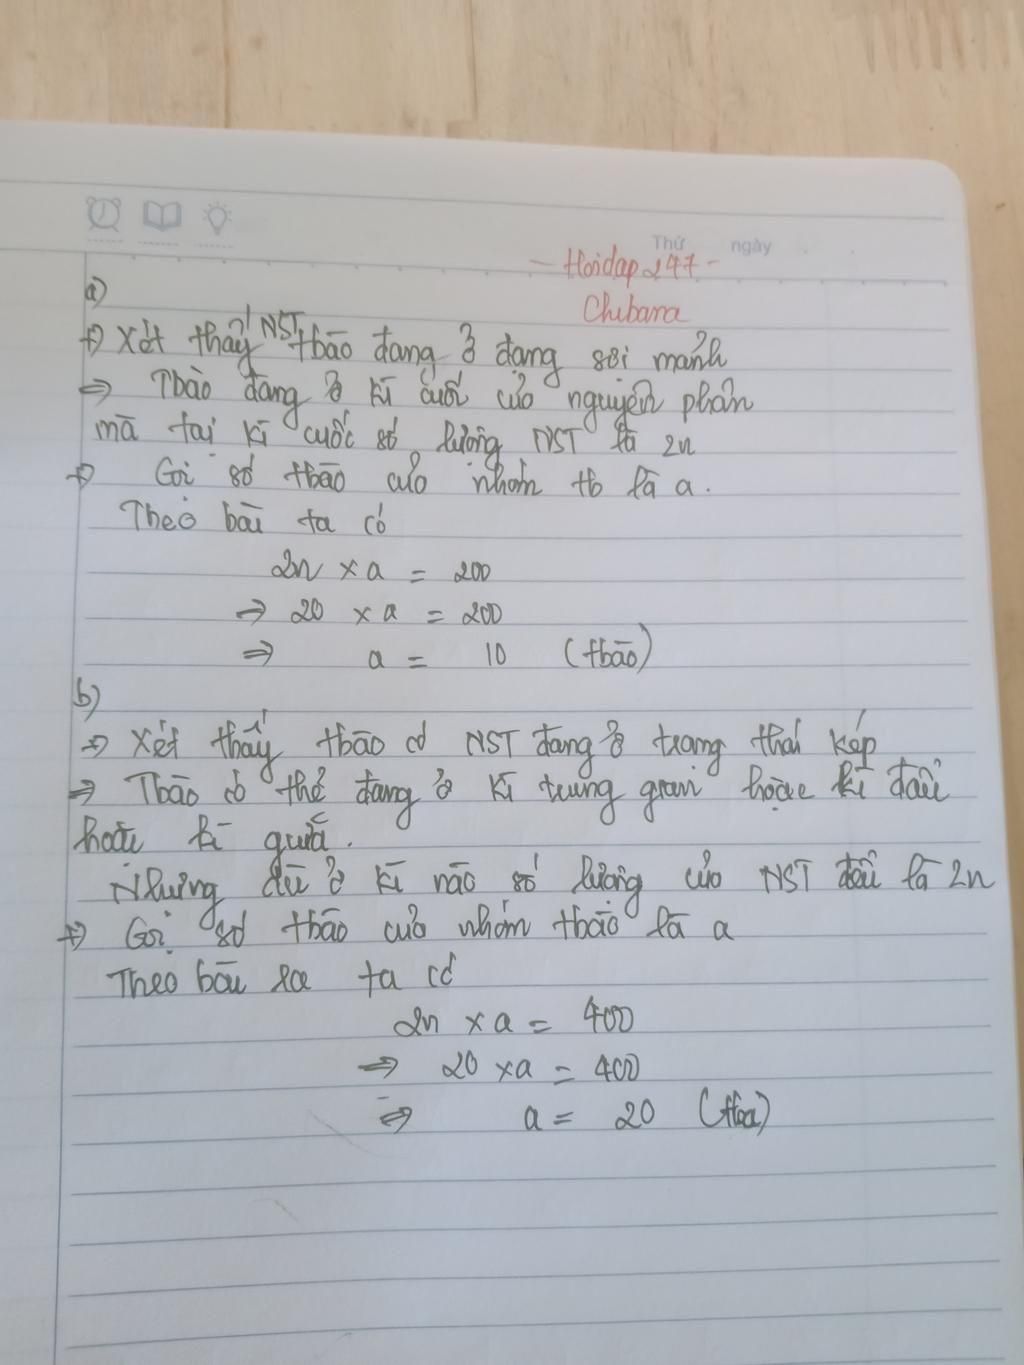 Thứ ngày
- Hoidap 247 -
Chibana
a)
+) Xét thấy NST tbào đang ở dạng sợi mảnh
=> Tbào đang ở kì cuối của nguyên phân
mà tại kì cuối số lượng NST là 2n
+) Gọi số tbào của nhóm tb là a.
Theo bài ta có
2n x a = 200
=> 20 x a = 200
=> a = 10 (tbào)
b)
=> Xét thấy tbào có NST đang ở trạng thái kép
=> Tbào có thể đang ở kì trung gian hoặc kì đầu
hoặc kì giữa.
Nhưng dù ở kì nào số lượng của NST đều là 2n
+) Gọi số tbào của nhóm tbào là a
Theo bài ra ta có
2n x a = 400
=> 20 x a = 400
=> a = 20 (tbà)